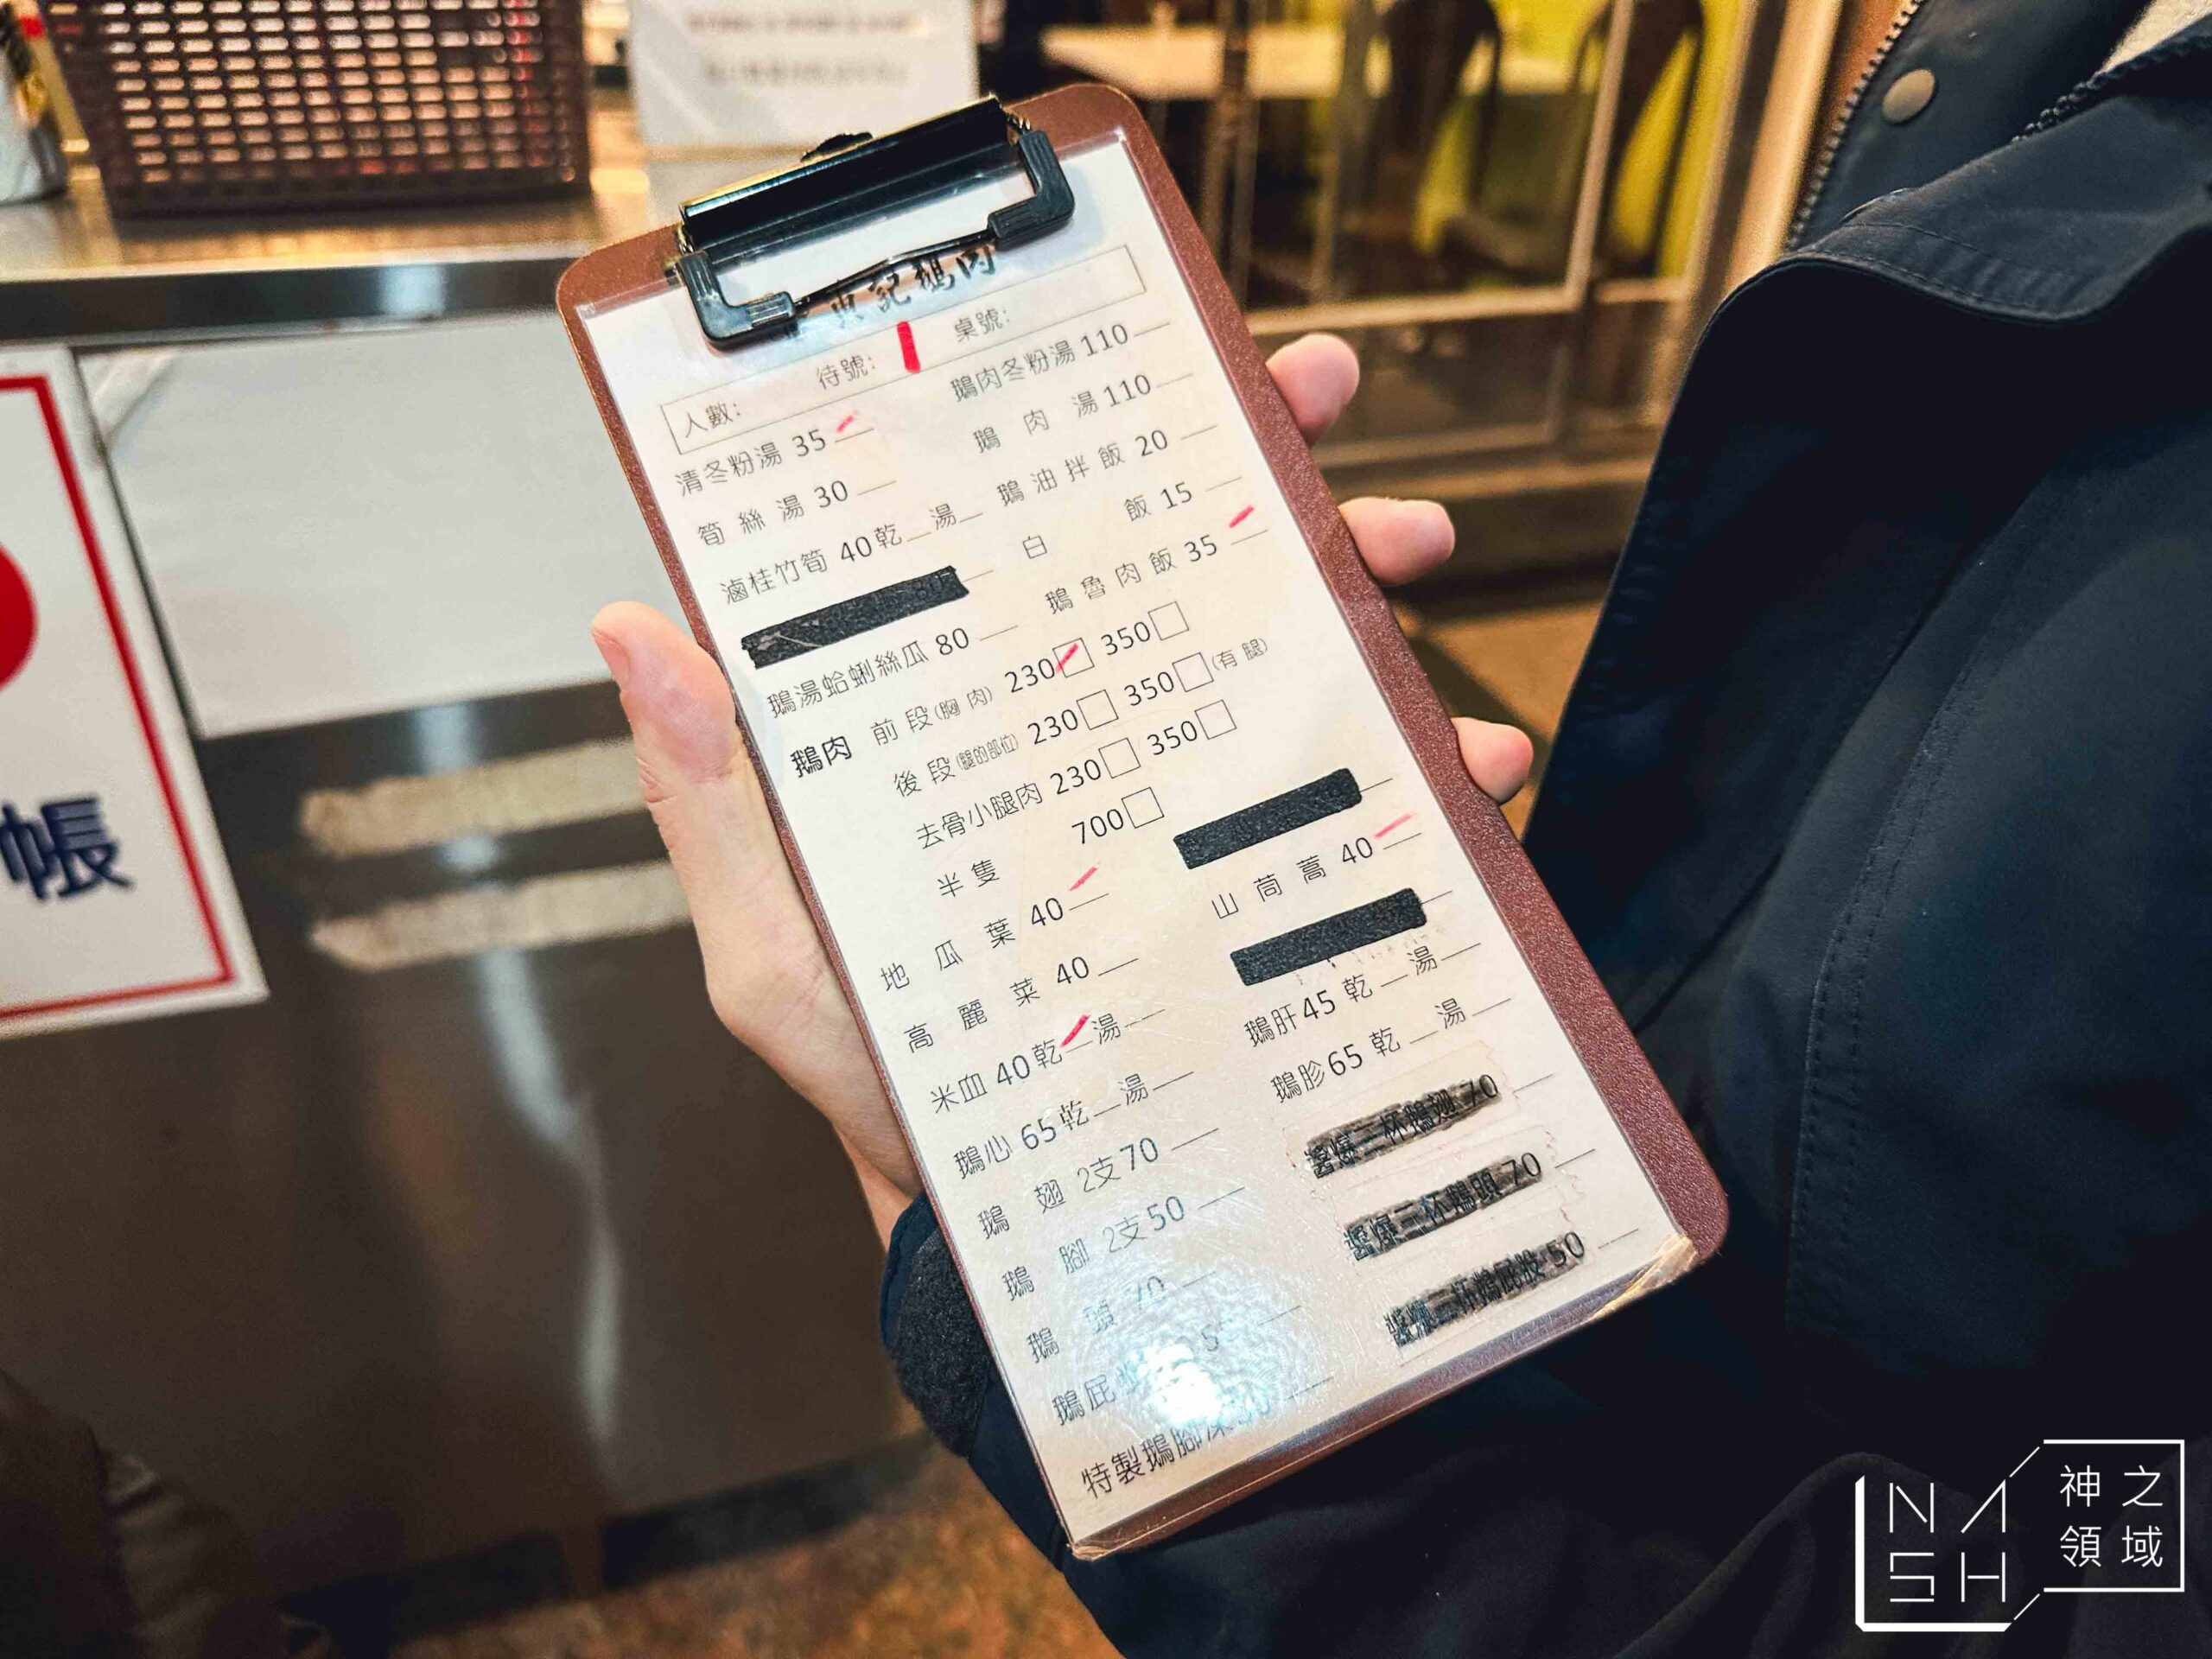 東記鵝肉
人數: 待號: 桌號:
清冬粉湯 35 鵝肉冬粉湯 110
筍絲湯 30 鵝肉湯 110
滷桂竹筍 40 乾 湯 鵝油拌飯 20
白飯 15
鵝湯蛤蜊絲瓜 80 鵝魯肉飯 35
鵝肉 前段(胸肉) 230 350
後段(腿的部位) 230 350 (有腿)
去骨小腿肉 230 350
半隻 700
地瓜葉 40 山茼蒿 40
高麗菜 40
米血 40 乾 湯 鵝肝 45 乾 湯
鵝心 65 乾 湯 鵝胗 65 乾 湯
鵝翅 2支 70 醬爆三杯鵝翅 70
鵝腳 2支 50 醬爆三杯鵝頭 70
鵝頭 70 醬爆三杯鵝屁股 50
鵝屁
特製鵝腳凍
帳
NASH
神之
領域